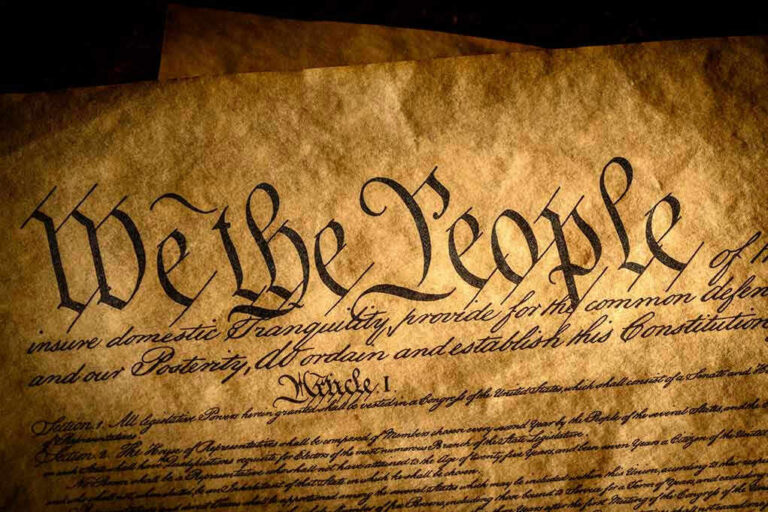 We the People of
insure domestic Tranquility, provide for the common defen
and our Posterity, do ordain and establish this Constitution
Article I.
Section 1. All legislative Powers herein granted shall be vested in a Congress of the United States, which shall consist of a Senate and
of Representatives.
Section 2. The House of Representatives shall be composed of Members chosen every second Year by the People of the several States, and the
in each State shall have Qualifications requisite for Electors of the most numerous Branch of the State Legislature.
No Person shall be a Representative who shall not have attained to the Age of twenty five Years, and been seven Years a Citizen of the United
and who shall not, when elected, be an Inhabitant of that State in which he shall be chosen.